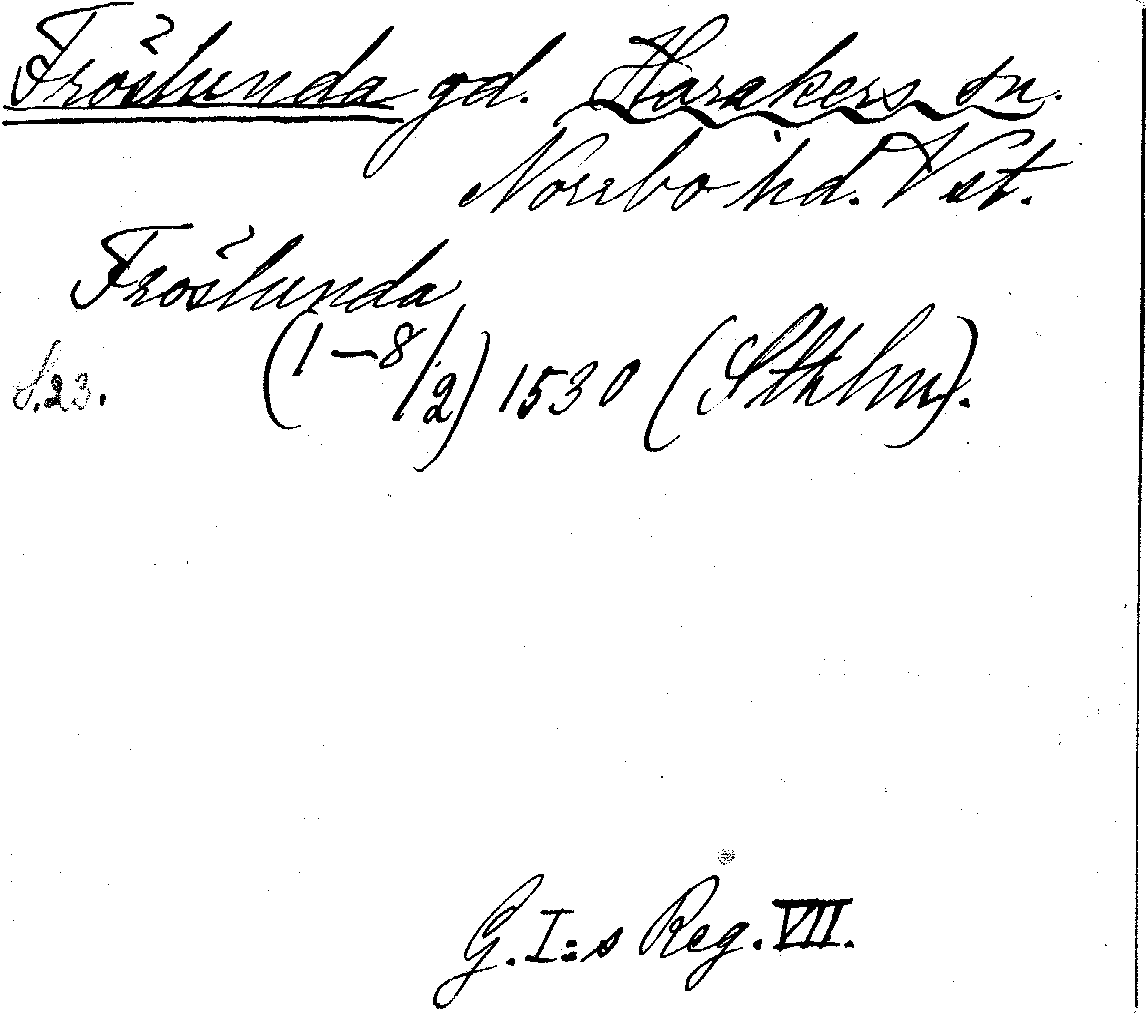 Fröslunda gd. Harakers sn.
Norrbo hd. Vst.
Fröslunda
S. 23. (1–8/2) 1530 (Sthlm).
G. I:s Reg. VII.